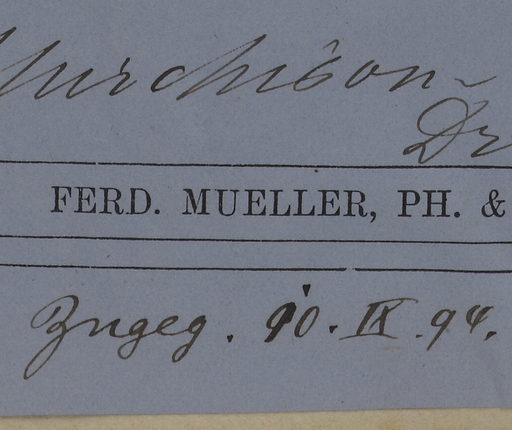 Murchison-
Dr
FERD. MUELLER, PH. &
Zugeg. 10. IX. 94.